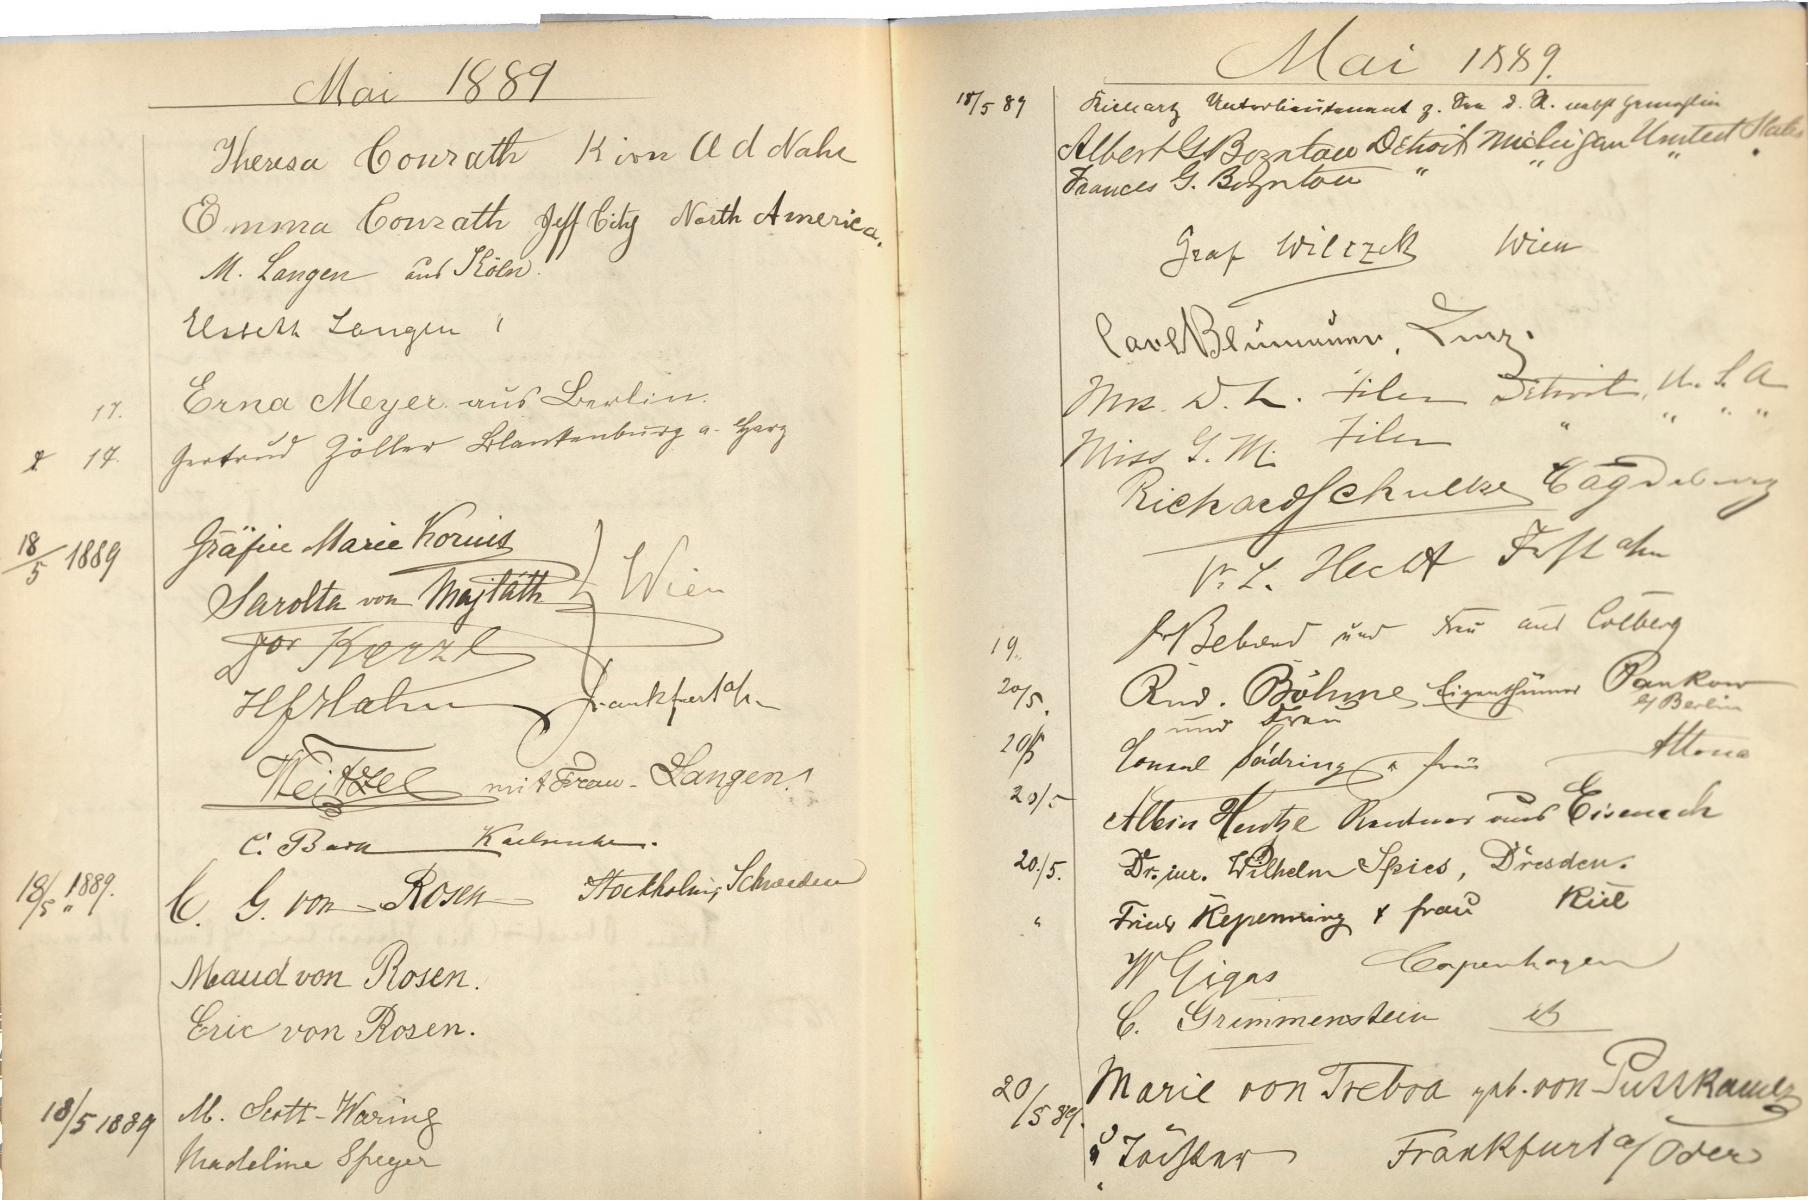 Mai 1889
Theresa Conrath Kirn a d Nahe
Emma Conrath Jeff City North America.
M. Langen aus Köln.
Langen "
17. Erna Meyer aus Berlin.
17. Gertrud Zöller Blankenburg a. Harz
18/5 1889 Gräfin Marie Kornis
Sarolta von Majláth Wien
Kerzl
Hahn Frankfurt a/
Weitzel mit Frau - Langen!
C. Karlsruhe.
18/5 " 1889. C. G. von Rosen Stockholm, Schweden
Maud von Rosen.
Eric von Rosen.
18/5 1889 M. Scott-Waring
Madeline Speyer
Mai 1889.
18/5 89 Unterlieutenant z. See d. R. nebst Gemahlin
Albert G Boynton Detroit Michigan United States
Frances G. Boynton " " " .
Graf Wilczek Wien
Carl Linz.
Mrs. D. L. Filer Detroit, U. S. A
Miss G. M. Filer " " " "
Richard Schulze Magdeburg
Hecht
19. Behrend und Frau aus Colberg
20/5. Rud. Böhme Eigenthümer Pankow
und Frau b/ Berlin
20/5 Consul Södring u Frau Altona
20/5 Albin Hentze Rentner aus Eisenach
20./5. Dr. iur. Wilhelm Spies, Dresden.
" Friedr Repenning & frau Kiel
W Gigas Copenhagen
C. Grimmenstein
20/5 89. Marie von Treboa geb. von Puttkamer
" Frankfurt a/Oder